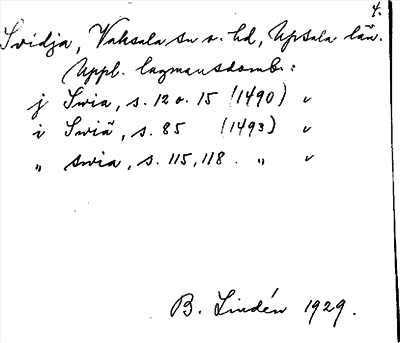 4.
Svidja, Vaksala sn o. hd, Upsala län.
Uppl. lagmansdomb.:
j Swia, s. 12 o. 15 (1490) v
i Swiä, s. 85 (1493) v
„ swia, s. 115, 118. „ v
B. Lindén 1929.